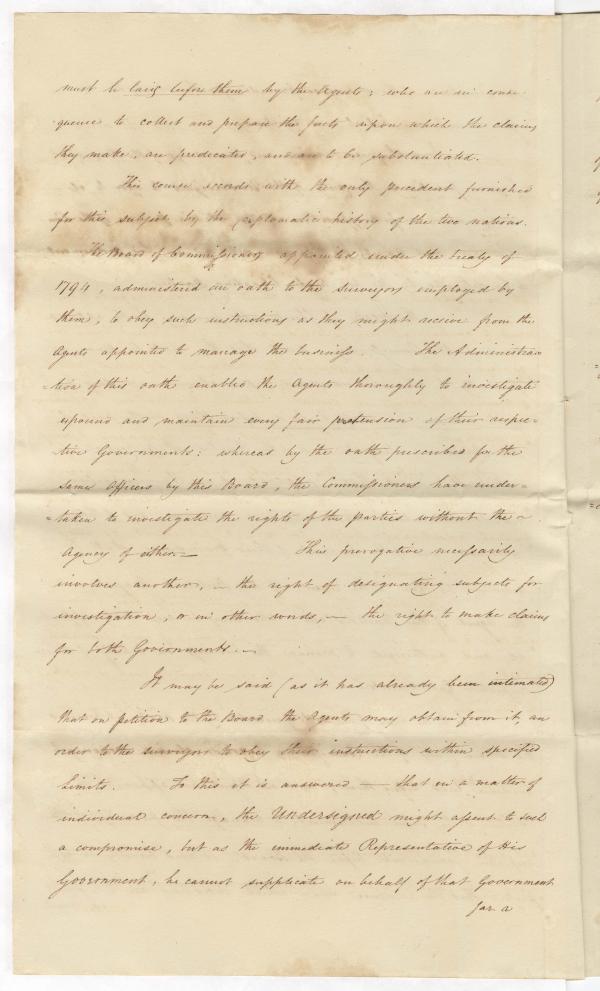 must be laid before them by the Agents; who are in conse
quence to collect and prepare the facts upon which the claims
they make, are predicated, and are to be substantiated.
This course accords with the only precedent furnished
for this subject by the diplomatic history of the two nations.
The Board of Commissioners appointed under the treaty of
1794, administered an oath to the Surveyors employed by
them, to obey such instructions as they might receive from the
Agents appointed to manage the business. The Administra
=tion of this oath enabled the Agents thoroughly to investigate
expound and maintain every fair pretension of their respec=
tive Governments: whereas by the oath prescribed for the
same Officers by this Board, the Commissioners have under=
=taken to investigate the rights of the parties without the
Agency of either — This prerogative necessarily
involves another, — the right of designating subjects for
investigation, or in other words, — the right to make claims
for both Governments. —
It may be said (as it has already been intimated)
that on petition to the Board the Agents may obtain from it, an
order to the surveyors to obey their instructions within specified
limits. To this it is answered — that in a matter of
individual concern, the Undersigned might assent to such
a compromise, but as the immediate Representative of His
Government, he cannot supplicate on behalf of that Government
for a